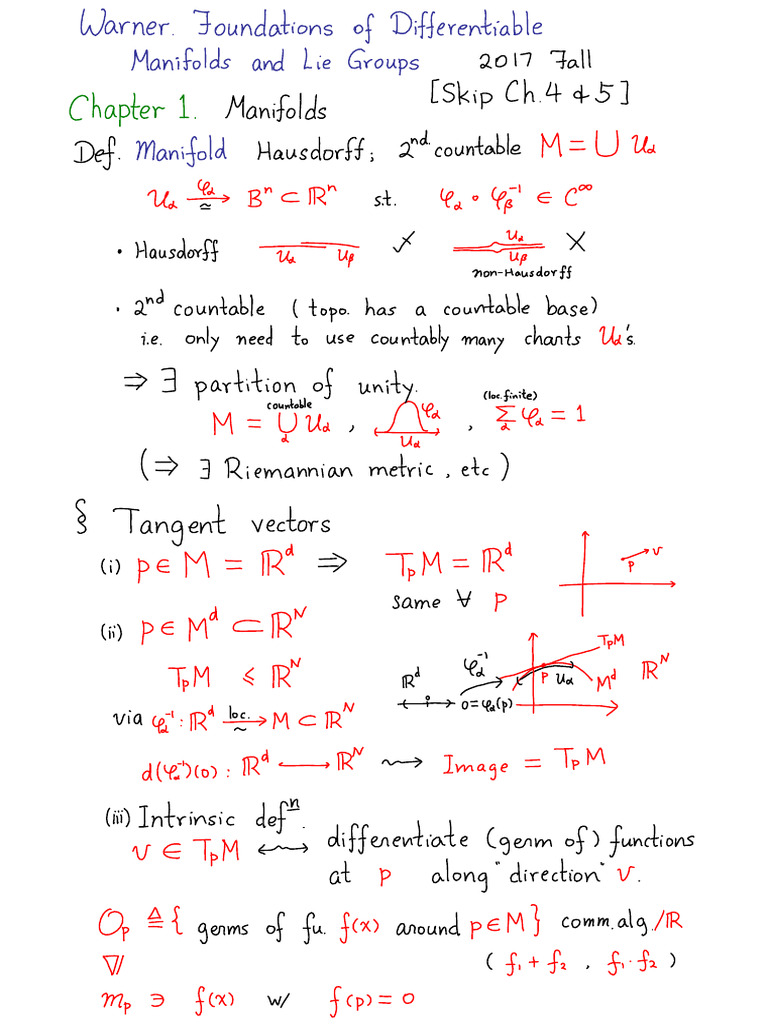 Warner. Foundations of Differentiable
Manifolds and Lie Groups 2017 Fall
[Skip Ch.4 & 5]
Chapter 1. Manifolds
Def. Manifold Hausdorff; 2nd countable M = ∪ Uα
Uα —φα→ ≃ Bⁿ ⊂ ℝⁿ s.t. φα ∘ φβ⁻¹ ∈ C^∞
• Hausdorff Uα Uβ ✓ Uα Uβ ✗
non-Hausdorff
• 2nd countable (topo. has a countable base)
i.e. only need to use countably many charts Uα's.
⇒ ∃ partition of unity.
M = ∪α countable Uα , φα Uα , (loc.finite) Σα φα = 1
(⇒ ∃ Riemannian metric, etc)
§ Tangent vectors
(i) p ∈ M = ℝᵈ ⇒ TpM = ℝᵈ p v
same ∀ p
(ii) p ∈ Mᵈ ⊂ ℝᴺ
TpM ⩽ ℝᴺ ℝᵈ φα⁻¹ 0=φα(p) p Uα TpM Mᵈ ℝᴺ
via φα⁻¹ : ℝᵈ —loc.→ ~ M ⊂ ℝᴺ
d(φα⁻¹)(0) : ℝᵈ ⟶ ℝᴺ ⇝ Image = TpM
(iii) Intrinsic defⁿ.
v ∈ TpM ↭ differentiate (germ of) functions
at p along "direction" v.
Op ≜ { germs of fu. f(x) around p∈M } comm. alg. /ℝ
▽/ ( f₁ + f₂ , f₁·f₂ )
mp ∋ f(x) w/ f(p) = 0